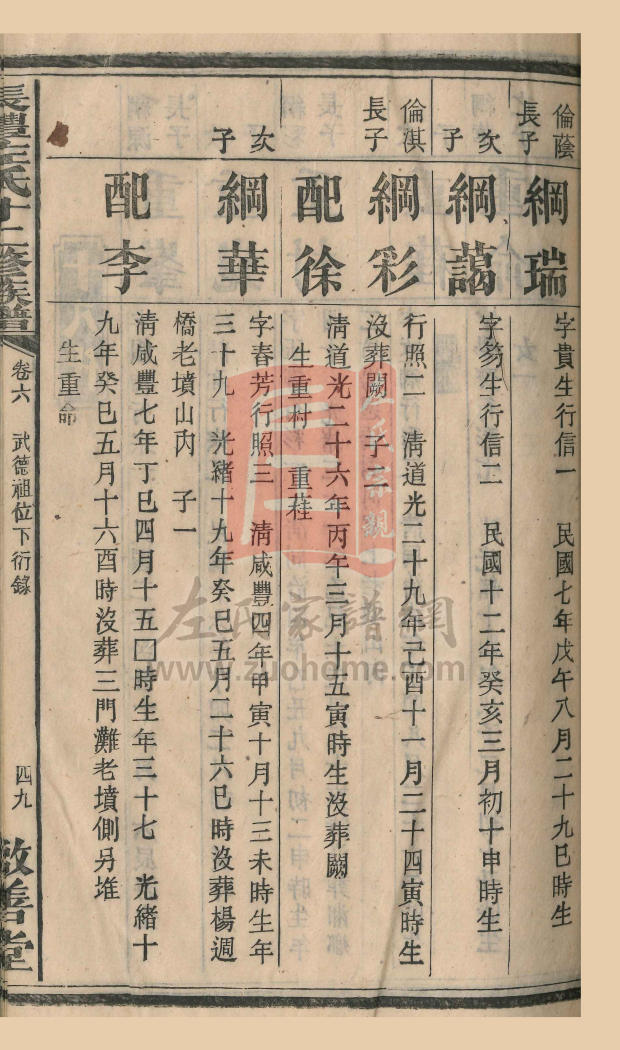 倫蔭
長子
綱瑞
字貴生行信一 民國七年戊午八月二十九巳時生
次
子
綱藹
字芴生行信二 民國十二年癸亥三月初十申時生
倫淇
長子
綱彩
行照二 清道光二十九年己酉十一月二十四寅時生
沒葬闕 子二
配徐
清道光二十六年丙午三月十五寅時生沒葬闕
生重村 重蓕
次
子
綱華
字春芳行照三 清咸豐四年甲寅十月十三未時生年
三十九 光緒十九年癸巳五月二十六巳時沒葬楊週
橋老墳山內 子一
配李
清咸豐七年丁巳四月十五囗時生年三十七 光緒十
九年癸巳五月十六酉時沒葬三門灘老墳側另堆
生重命
長醴左氏十二修族譜
卷六 武德祖位下衍錄
四九
敦善堂
左氏家譜網
www.zuohome.com